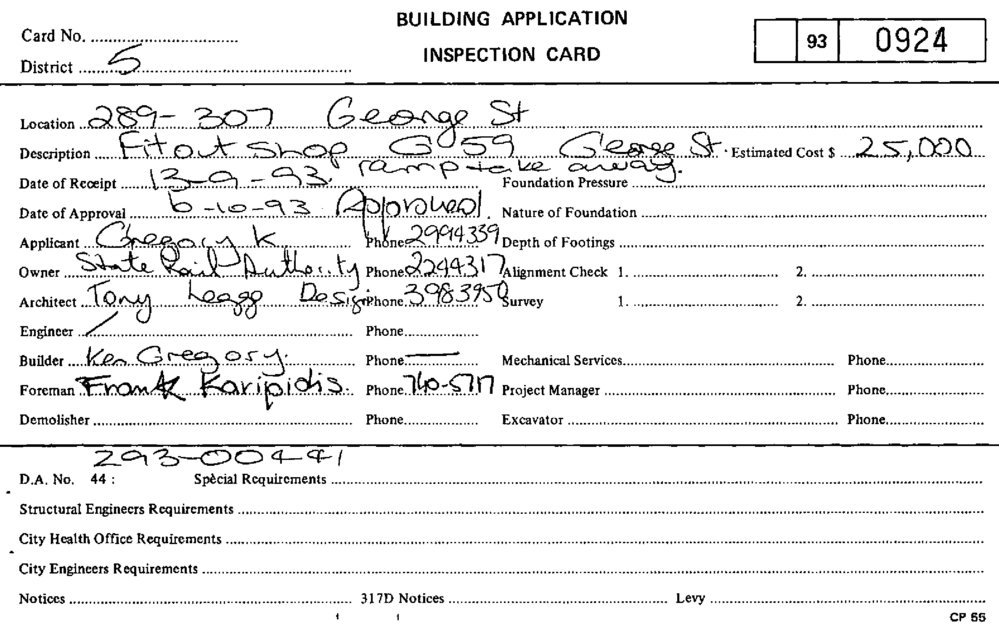 BUILDING APPLICATION
INSPECTION CARD
Card No.
District 5
93 0924
Location 289-307 George St
Description Fitout Shop G 59 George St. Estimated Cost $ 25,000
ramp take away.
Date of Receipt 13-9-93. Foundation Pressure
Date of Approval 6-10-93 Approved. Nature of Foundation
Applicant Gregory K. Phone 2994339 Depth of Footings
Owner State Rail Authority Phone 2244317 Alignment Check 1. 2.
Architect Tony Leagg Design Phone 3983950 Survey 1. 2.
Engineer Phone
Builder Ken Gregory. Phone — Mechanical Services Phone
Foreman Frank Karipidis. Phone 740-5717 Project Manager Phone
Demolisher Phone Excavator Phone
293-00441
D.A. No. 44 : Special Requirements
Structural Engineers Requirements
City Health Office Requirements
City Engineers Requirements
Notices 317D Notices Levy
CP 55